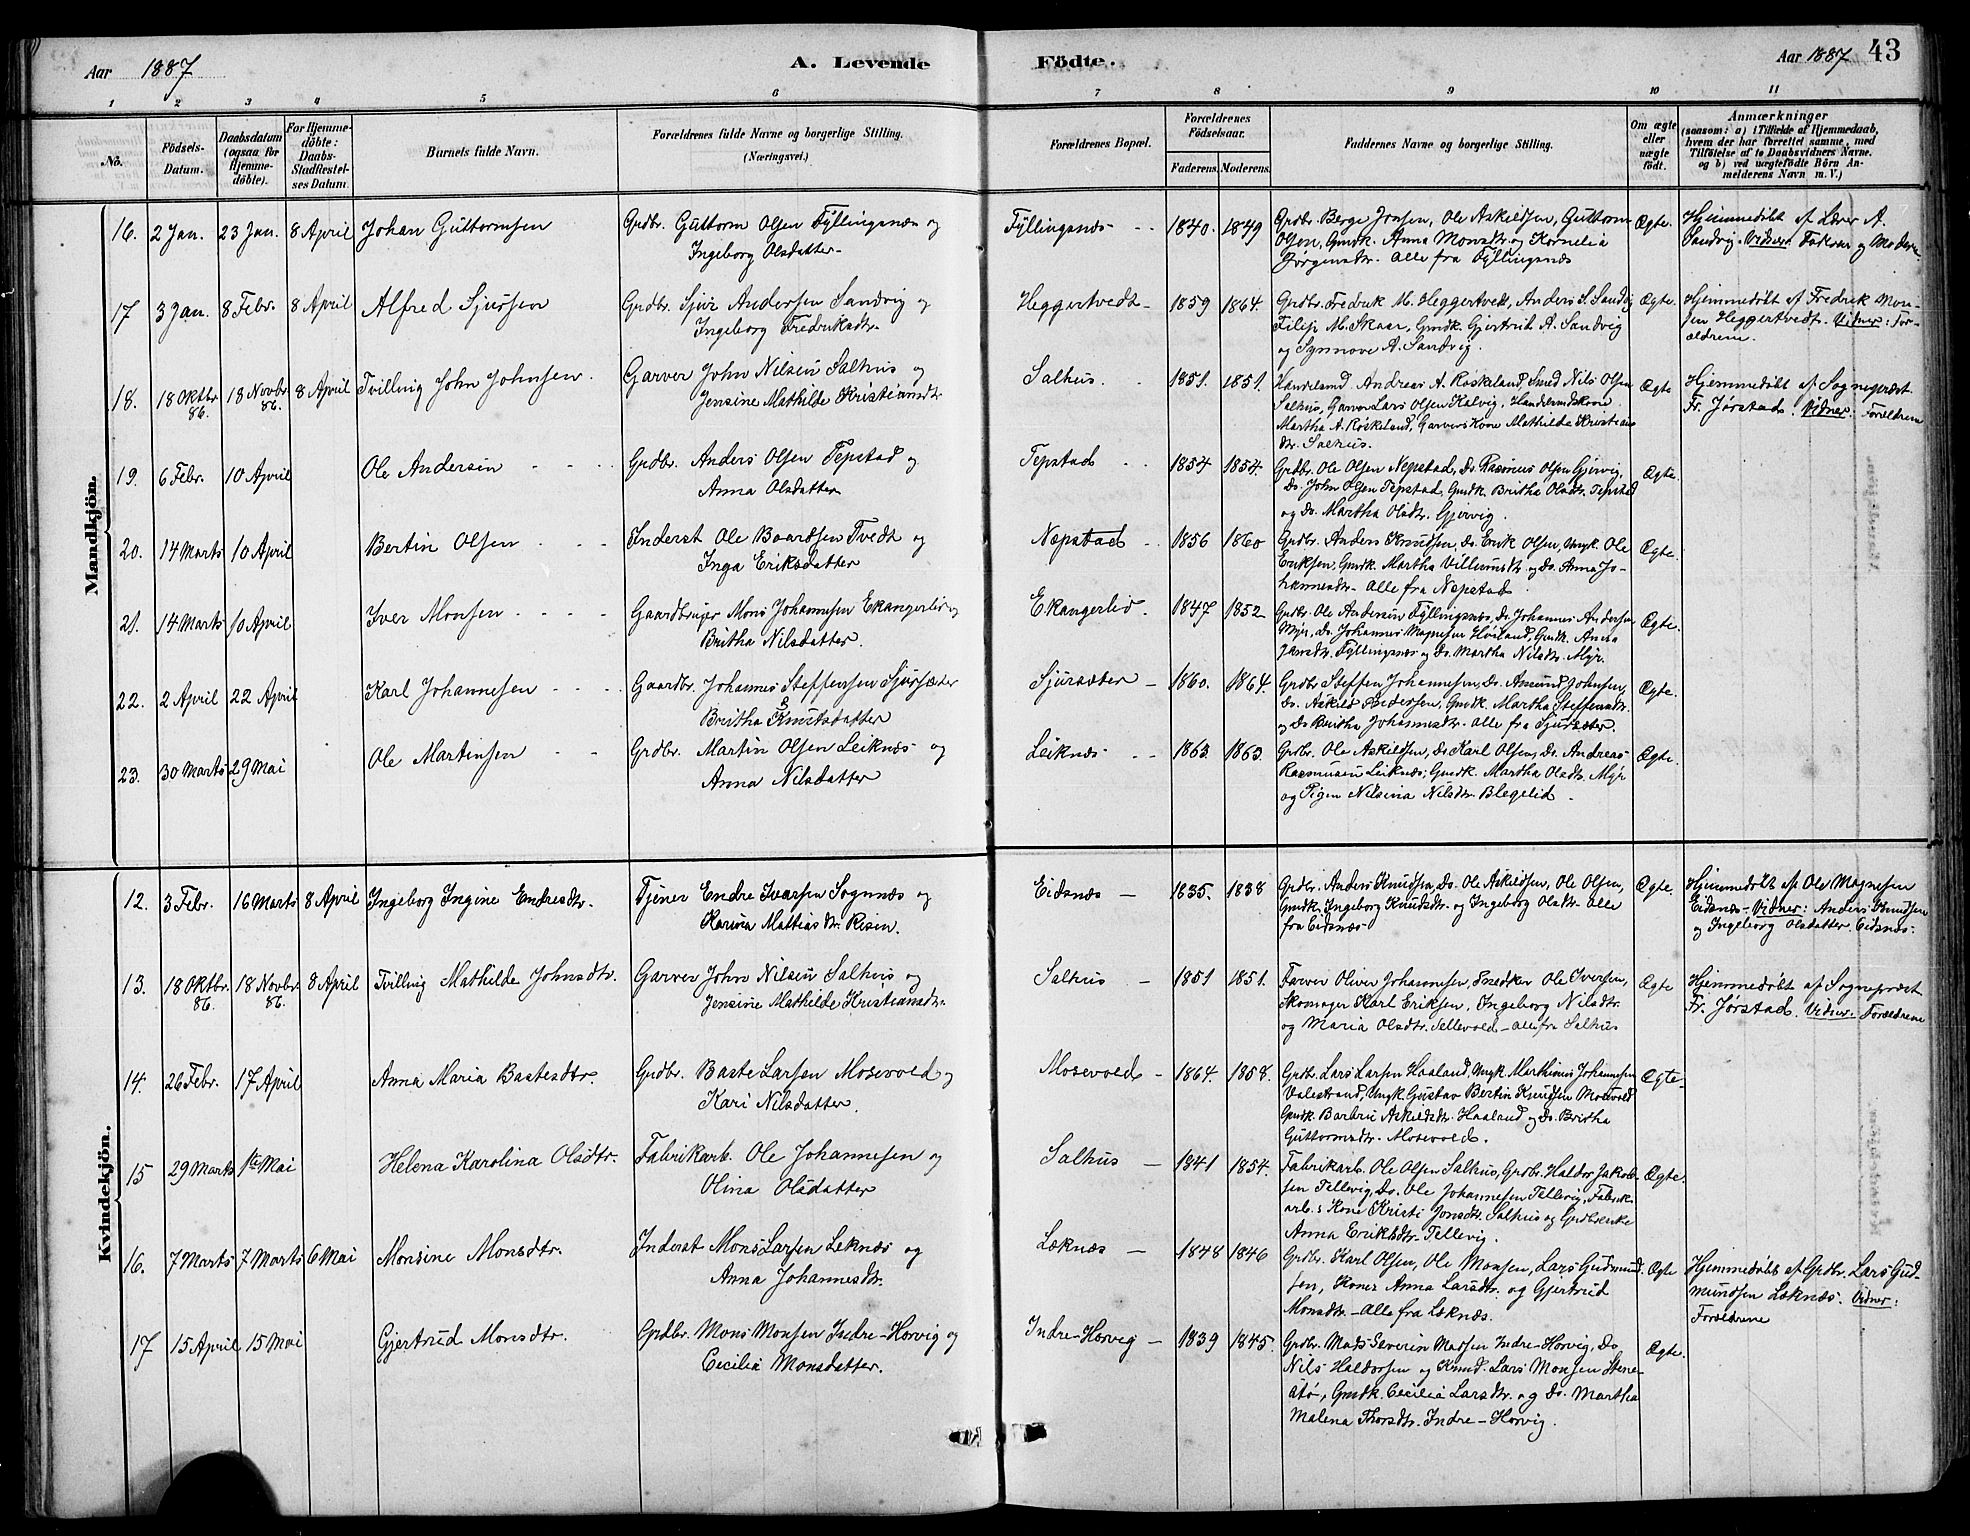 Aar 1887 A. Levende Födte. Aar 1887 43
1 2 3 4 5 6 7 8 9 10 11
No.
Födsels-
Datum.
Daabsdatum
(ogsaa for
Hjemme-
döbte).
For Hjemme-
döbte:
Daabs-
Stadfæstel-
ses Datum.
Barnets fulde Navn.
Forældrenes fulde Navne og borgerlige Stilling.
(Næringsvei.)
Forældrenes Bopæl.
Forældrenes
Födselsaar.
Faderens. Moderens.
Faddernes Navne og borgerlige Stilling.
Om ægte
eller
uægte
födt.
Anmærkninger
(saasom: a) i Tilfælde af Hjemmedaab,
hvem der har forrettet samme, med
Tilföielse af to Daabsvidners Navne.
og b) ved uægtefödte Börn An-
melderens Navn m. V.)
Mandkjön.
16. 2 Jan. 23 Jan. 8 April Johan Guttormsen
Grdbr. Guttorm Olsen Fyllingsnæs og
Ingeborg Olsdatter
Fyllingsnæs 1840. 1849
Grdbr. Berge Jonsen, Ole Askildsen, Guttorm
Olsen, Gmdk. Anna Monsdtr. og Kornelia
Jørgensdtr. alle fra Fyllingsnæs
Ægte.
Hjemmedøbt af Lærer A.
Sandvig. Vidner: Faderen og Moderen
17 3 Jan. 8 Febr. 8 April Alfred Sjursen
Grdbr. Sjur Andersen Sandvig og
Ingeborg Fredriksdtr.
Heggertvedt 1859 1864.
Grdbr. Fredrik M. Heggertvedt, Anders S. Sandvig
Filip M. Skaar, Gmdk. Gjertrud A. Sandvig
og Synnove A. Sandvig.
Ægte.
Hjemmedøbt af Fredrik Mon-
sen Heggertvedt. Vidner: For-
ældrene.
18. 18 Oktbr. 86. 18 Novbr. 86. 8 April Tvilling John Johnsen.
Garver John Nilsen Salhus og
Jensine Mathilde Kristiansdtr
Salhus. 1851. 1851.
Handelsmd. Andreas A. Roskeland, Smed Nils Olsen
Salhus, Garver Lars Olsen Kalvig, Handelsmdskone
Martha A. Roskeland, Garvers Kone Mathilde Kristians
dtr. Salhus.
Ægte
Hjemmedøbt af Sognepræst
Fr. Jørstad. Vidner: Forældrene
19. 6 Febr. 10 April Ole Andersen
Grdbr. Anders Olsen Tepstad og
Anna Olsdatter
Tepstad 1854 1854.
Grdbr. Ole Olsen Nepstad, Do. Rasmus Olsen Gjervig,
Do. John Olsen Tepstad, Gmdk. Britha Olsdtr. Tepstad
og Do. Martha Olsdtr. Gjervig.
Ægte.
20. 14 Marts 10 April Bertin Olsen
Inderst Ole Baardsen Tvedt og
Inga Eriksdatter
Nepstad 1856 1860
Grdbr. Anders Knudsen, Do. Erik Olsen, Ungk. Ole
Eriksen, Gmdk. Martha Villumsdtr. og Do. Anna Jo-
hannesdtr. alle fra Nepstad.
Ægte.
21. 14 Marts 10 April Iver Monsen
Gaardbruger Mons Johannesen Ekangerlid og
Britha Nilsdatter.
Ekangerlid. 1847 1852
Grdbr. Ole Andersen Fyllingsnæs, Do. Johannes Andersen
Myr, Do. Johannes Magnesen Høiland, Gmdk. Anna
Jansdtr. Fyllingsnæs og Do. Martha Nilsdtr. Myr.
Ægte.
22. 2 April 22 April Karl Johannesen
Gaardbr. Johannes Steffensen Sjursæter
Britha Knutsdatter
Sjursæter 1860. 1864.
Grdbr. Steffen Johannesen, Do. Amund Johnsen,
Do. Askild Andersen, Gmdk. Martha Steffensdtr.
og Do Britha Johannesdtr. alle fra Sjursæter.
Ægte.
23. 30 Marts 29 Mai Ole Martinsen
Grdbr. Martin Olsen Leiknæs og
Anna Nilsdatter
Leiknæs 1863 1863.
Grdbr. Ole Askildsen, Do Karl Olsen, Do. Andreas
Rasmusen Leiknæs, Gmdk. Martha Olsdtr. Myr
og Pigen Nilsina Nilsdtr. Blegelid.
Ægte.
Kvindekjön.
12. 3 Febr. 16 Marts 8 April Ingeborg Ingine Endresdtr.
Tjener Endre Ivarsen Sognnæs og
Karina Mattiasdtr. Risen.
Eidsnæs 1835. 1838
Grdbr. Anders Knudsen, Do. Ole Askildsen, Ole Olsen,
Gmdk. Ingeborg Knudsdtr. og Ingeborg Olsdtr. alle
fra Eidsnæs
Ægte.
Hjemmedøbt af Ole Magnesen
Eidsnæs. Vidner: Anders Knudsen
og Ingeborg Olsdatter Eidsnæs.
13. 18 Oktbr. 86. 18 Novbr. 86. 8 April Tvilling Mathilde Johnsdtr.
Garver John Nilsen Salhus og
Jensine Mathilde Kristiansdtr.
Salhus 1851 1851.
Farver Oliver Johannesen, Snedker Ole Iversen,
Skomager Karl Eriksen, Ingeborg Nilsdtr.
og Maria Olsdtr. Tellevold alle fra Salhus
Ægte
Hjemmedøbt af Sognepræst
Fr. Jørstad. Vidner: Forældrene
14. 26 Febr. 17 April Anna Maria Bastesdtr.
Grdbr. Baste Larsen Mosevold og
Kari Nilsdatter.
Mosevold 1864. 1858.
Grdbr. Lars Larsen Haaland, Ungk. Marthinus Johannesen
Valestrand, Ungk. Gustav Bertin Knudsen Mosevold
Gmdk. Barbru Askildsdtr. Haaland og Do. Britha
Guttormsdtr. Mosevold.
Ægte.
15 29 Marts 1ste Mai Helena Karolina Olsdtr.
Fabrikarb. Ole Johannesen og
Olina Olsdatter
Salhus 1841 1854.
Fabrikarb. Ole Olsen Salhus, Grdbr. Haldor Jakob-
sen Tellevig, Do. Ole Johannesen Tellevig, Fabrik-
arb.s Kone Kristi Jonsdtr. Salhus og Grdbrenke
Anna Eriksdtr. Tellevig.
Ægte.
16. 7 Marts 7 Marts 6 Mai Monsine Monsdtr.
Inderst Mons Larsen Leknæs og
Anna Johannesdtr.
Leknæs 1848 1846
Grdbr. Karl Olsen, Ole Monsen, Lars Gudmund-
sen, Koner Anna Larsdtr. og Gjertrud
Monsdtr. alle fra Leknæs.
Ægte
Hjemmedøbt af Grdbr. Lars Gud-
mundsen Leknæs. Vidner:
Forældrene
17 15 April 15 Mai Gjertrud Monsdtr.
Grdbr. Mons Monsen Indre-Horvig og
Cecilia Monsdatter.
Indre-Horvig 1839 1845.
Grdbr. Mads Severin Madsen Indre-Horvig, Do
Nils Haldorsen og Knud Lars Monsen Stene-
stø, Gmdk. Cecilia Larsdtr. og Do. Martha
Malena Thorsdtr. Indre-Horvig.
Ægte.